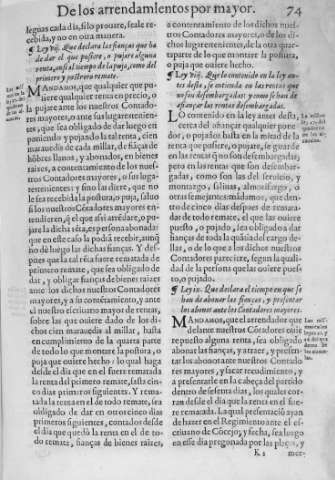 De los arrendamientos por mayor. 74
leguas cada dia, si lo prouare, se a le re-
cebida, y no en otra manera.
¶ Ley vij. Que declara las fianças que ha
de dar el que pusiere, o pujare alguna
renta, ansi al tiempo de la puja, como del
primero y postrero remate.
MANDAMOS, que qualquier que pu-
siere qualquier renta en precio, o
la pujare ante los nuestros Contadores
mayores, o ante sus lugarestenien-
tes, que sea obligado de dar luego en
poniendo y pujando la tal renta, cien
marauedis de cada millar, de fiãças de
hõbres llanos, y abonados, en bienes
raizes, a contentamiento de los nues-
tros Contadores mayores, o sus luga-
restenientes: y sino las diere, que no
le sea recebida la postura, o puja, saluo
si los nuestros Cõtadores mayores en-
tendierẽ, q̃ el que assi arrẽdare, o puja-
re la dicha rẽta, es persona abonada: que
en este caso la podrã recebir, aunq̃
no dè luego las dichas fianças. Y des-
pues que la tal rẽta fuere rematada de
primero remate, que sea obligado de
dar, y obligar fianças de bienes raizes
ante los dichos nuestros Contadores
mayores, y a su contẽtamiento, y ante
el nuestro escriuano mayor de rentas,
sobre las que ouiere dado de los di-
chos cien marauedis al millar, hasta
en cumplimiento de la quarta parte
de todo lo que montare la postura, o
puja que ouiere hecho: lo qual haga
desde el dia en que le fuere rematada
la renta del primero remate, hasta cin-
co dias primeros siguientes. Y rema-
tada la renta en el de todo remate, sea
obligado de dar en otros cinco dias
primeros siguientes, contados desde
el dia que quedò la renta en el de to-
do remate, fianças de bienes raizes,
a contentamiento de los dichos nues-
tros Contadores mayores, o de los di-
chos lugarestenientes, de la otra quar-
ta parte de lo que montare la postura,
o puja que ouiere hecho.
¶ Ley viij. Que lo contenido en la ley an-
tes desta, se entienda en las rentas que
no son desembargadas: y como se han de
afiançar las rentas desembargadas.
LO contenido en la ley antes desta,
cerca del afiançar qualquier pone-
dor, o pujador hasta en la mitad de la
renta que pusiere, o pujare, se guarde
en las rentas q̃ no son desembargadas:
pero en las rentas que son desembar-
gadas, como son las del seruicio, y
montazgo, salinas, almoxarifazgo, o
otras semejantes: mãdamos, que den-
tro de cinco dias despues de remata-
da de todo remate, el que las ouiere
puesto, o pujado, sea obligado a dar
fianças de toda la quãtia del cargo de-
llas, o de lo que a los dichos nuestros
Contadores pareciere, segun la quali-
dad de la persona que las ouiere pues-
to, o pujado.
¶ Ley ix. Que declara el tiempo en que se
han de abonar las fianças, y presentar
los abonos ante los Contadores mayores.
MANDAMOS, que el arrendador que
delante nuestros Cõtadores ouie-
re puesto alguna renta, sea obligado
abonar las fianças, y a traer, y presen-
tar los abonos ante los nuestros Contado-
res mayores, y sacar recudimiento, y
a presentarle en la cabeça del partido
dentro de sesenta dias, los quales cor-
ran desde el dia que la renta en el fue-
re rematada. La qual presentació ayan
de hazer en el Regimiento ante el es-
criuano de Cõcejo, y fecha, sea luego
en esse dia pregonada por las plaças, y
K 2 mer-